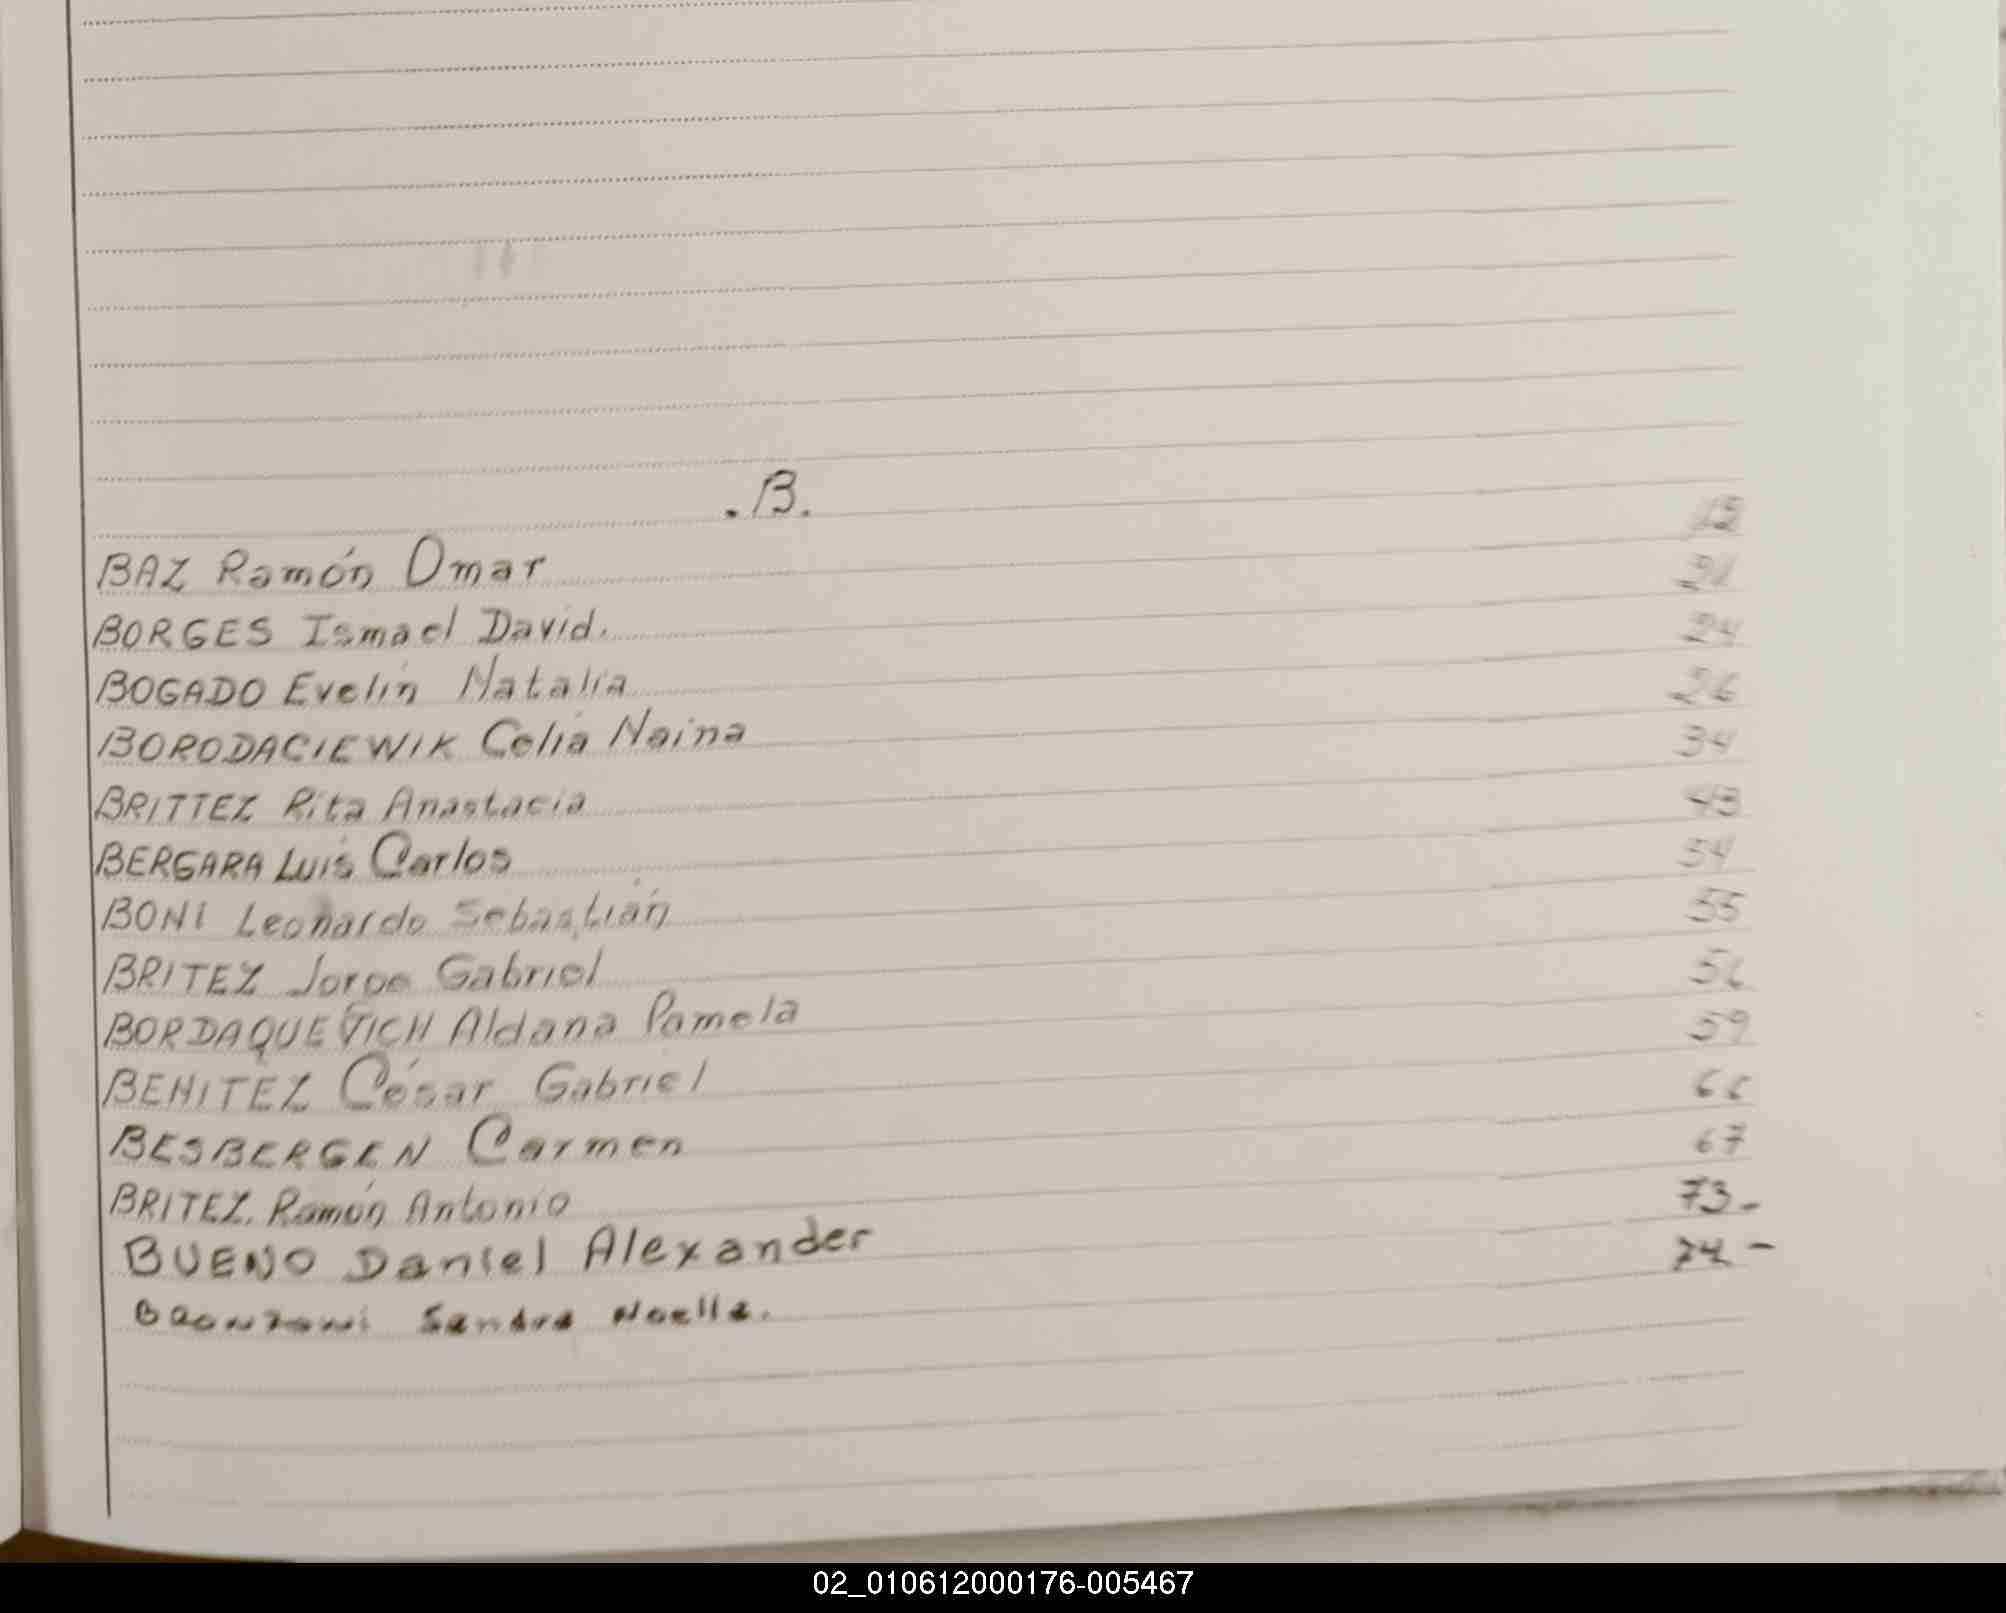 .B.
BAZ Ramón Omar
BORGES Ismael David. 21
BOGADO Evelin Natalia 24
BORODACIEWIK Celia Naina 26
BRITTEZ Rita Anastacia 34
BERGARA Luis Carlos 43
BONI Leonardo Sebastián 54
BRITEZ Jorge Gabriel 55
BORDAQUEVICH Aldana Pamela 56
BENITEZ César Gabriel 59
BESBERGEN Carmen 66
BRITEZ. Ramón Antonio 67
BUENO Daniel Alexander 73-
Sandra Noelia. 74-
02_010612000176-005467